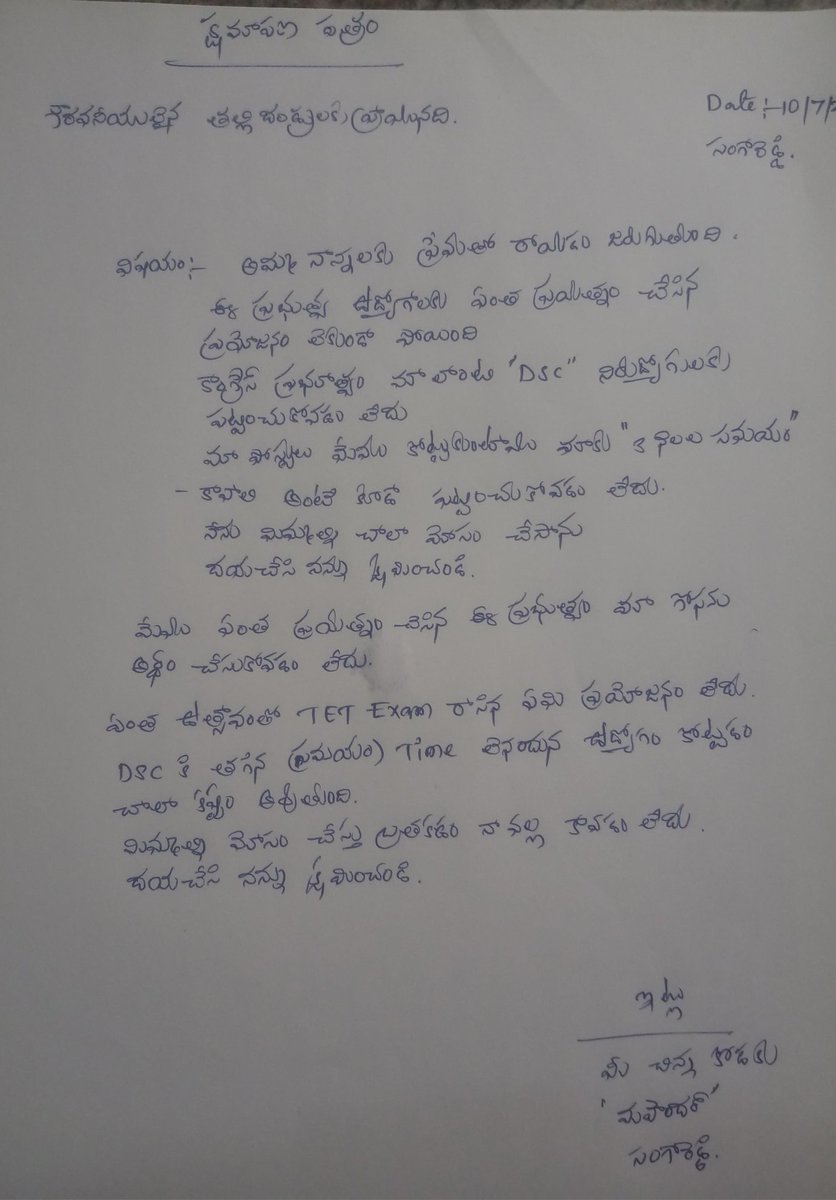 క్షమాపణ పత్రం
గౌరవనీయులైన తల్లి దండ్రులకు వ్రాయునది.
Date :- 10/7/2
సంగారెడ్డి.
విషయం:- అమ్మ నాన్నలకు ప్రేమతో రాయడం జరుగుతుంది.
ఈ ప్రభుత్వ ఉద్యోగాలకు ఎంత ప్రయత్నం చేసిన
ప్రయోజనం లేకుండా పోయింది
కాంగ్రేస్ ప్రభుత్వం మా లాంటి "DSC" నిరుద్యోగులకు
పట్టించుకోవడం లేదు
మా పోస్టులు మేము కోట్టుకుంటాము మాకు "3 నెలల సమయం"
- కావాలి అంటే కూడా పట్టించుకోవడం లేదు.
నేను మిమ్మల్ని చాలా మోసం చేసాను
దయచేసి నన్ను క్షమించండి.
మేము ఎంత ప్రయత్నం చెసిన ఈ ప్రభుత్వం మా గోసను
అర్థం చేసుకోవడం లేదు.
ఎంత ఉత్సాహంతో TET Exam రాసిన ఏమి ప్రయోజనం లేదు.
DSC కి తగిన (సమయం) Time లేనందున ఉద్యోగం కోట్టడం
చాలా కష్టం అవుతుంది.
మిమ్మల్ని మోసం చేస్తు బ్రతకడం నా వల్ల కావడం లేదు.
దయచేసి నన్ను క్షమించండి.
ఇట్లు
మీ చిన్న కోడకు
సంగారెడ్డి.